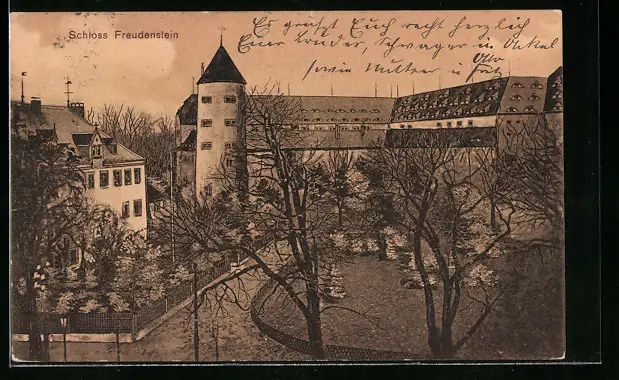 Schloss Freudenstein
Es grüßt Euch recht herzlich
Euer Bruder, Schwager u. Onkel
Otto
sowie Mutter u. Fritz